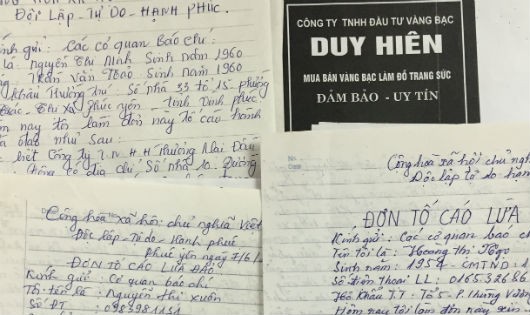 Độc Lập - Tự Do - Hạnh Phúc.
Kính gửi: Các cơ quan Báo chí:
là: Nguyễn Thị Ninh Sinh năm 1960
Trần Văn Thao Sinh năm 1960
Khẩu thường trú: Số nhà 33 tổ 15. phường
Thị xã Phúc yên - Tỉnh Vĩnh phúc.
nay tôi làm đơn này tố cáo hành
đảo như sau:
biết Công ty T.N.H.H Thương Mại
địa chỉ số nhà 10. đường
CÔNG TY TNHH ĐẦU TƯ VÀNG BẠC
DUY HIÊN
MUA BÁN VÀNG BẠC LÀM ĐỒ TRANG SỨC
ĐẢM BẢO - UY TÍN
Cộng hòa xã hội chủ nghĩa Việt
Độc lập - Tự do - Hạnh phúc
Phúc yên ngày 7/6/
ĐƠN TỐ CÁO LỪA ĐẢO
Kính gửi: Cơ quan báo chí
Tên là: Nguyễn thị xuân
Số ĐT
Cộng hòa xã hội chủ ngh
Độc lập tự do hạn
ĐƠN TỐ CÁO LỪA
Kính gửi: Các cơ quan báo ch
Tên tôi là: Hoàng thị
Sinh năm: 1954 - CMTND:
Số điện thoại LL: 0165.32686
Hộ Khẩu T.T: Tổ 5 - P. Hùng Vươn
Hôm nay tôi làm đơn này xin